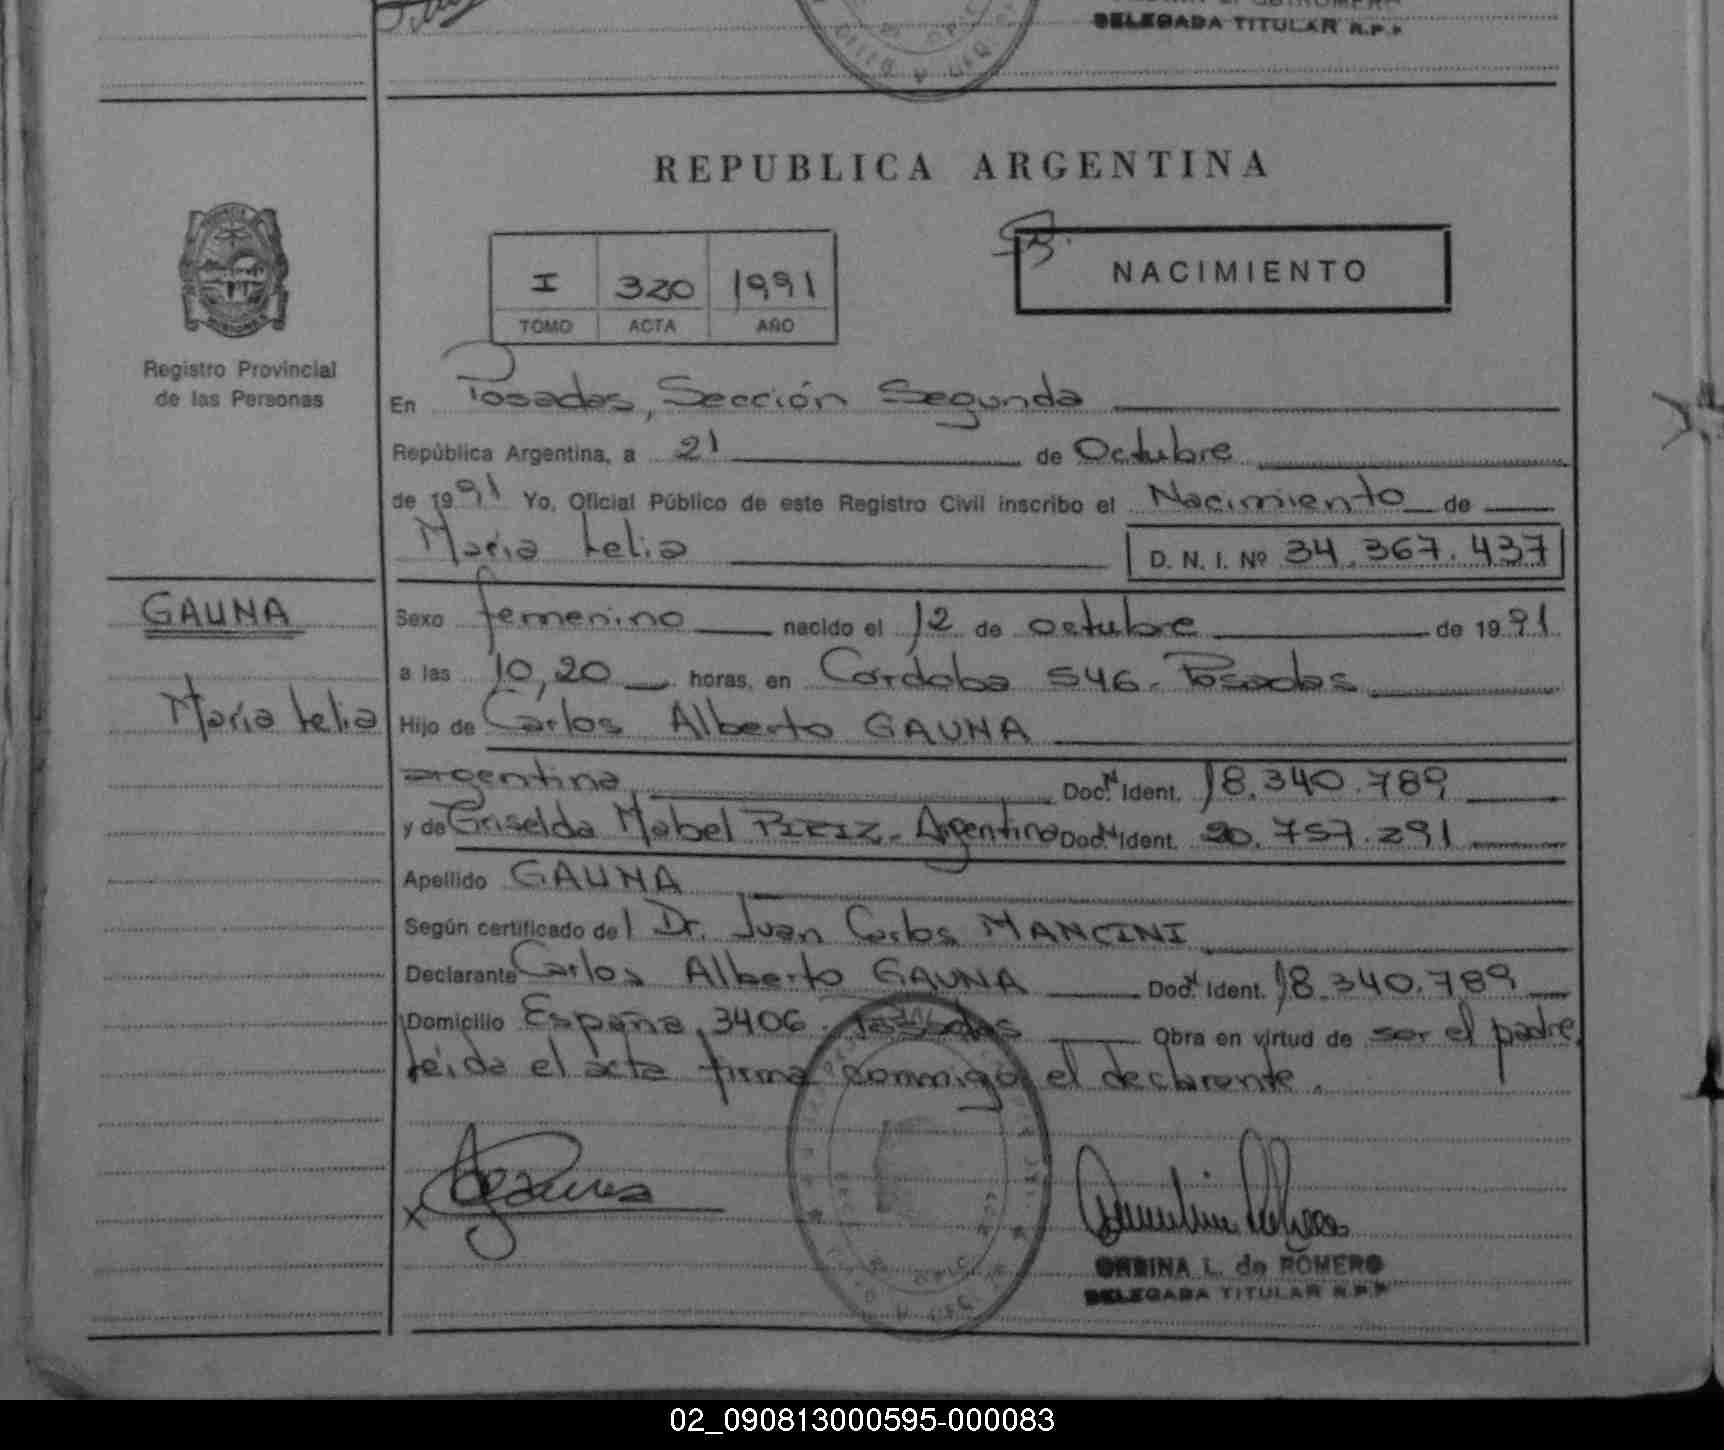 DELEGADA TITULAR R.P.P.
REPUBLICA ARGENTINA
I 320 1991
TOMO ACTA AÑO
NACIMIENTO
Registro Provincial
de las Personas
En Posadas, Sección Segunda
República Argentina, a 21 de Octubre
de 1991 Yo, Oficial Público de este Registro Civil inscribo el Nacimiento de
María Lelia D. N. I. Nº 34.367.437
GAUNA
María Lelia
Sexo femenino nacido el 12 de octubre de 1991
a las 10,20 horas, en Córdoba 546. Posadas
Hijo de Carlos Alberto GAUNA
argentina, Doc. N Ident. 18.340.789
y de Griselda Mabel PIRIZ. Argentina Doc. N Ident. 20.757.291
Apellido GAUNA
Según certificado del Dr. Juan Carlos MANCINI
Declarante Carlos Alberto GAUNA Doc. N Ident. 18.340.789
Domicilio España, 3406. Posadas Obra en virtud de ser el padre,
leída el acta firma conmigo el declarante.
X
L. de ROMERO
DELEGADA TITULAR R.P.P.
02_090813000595-000083